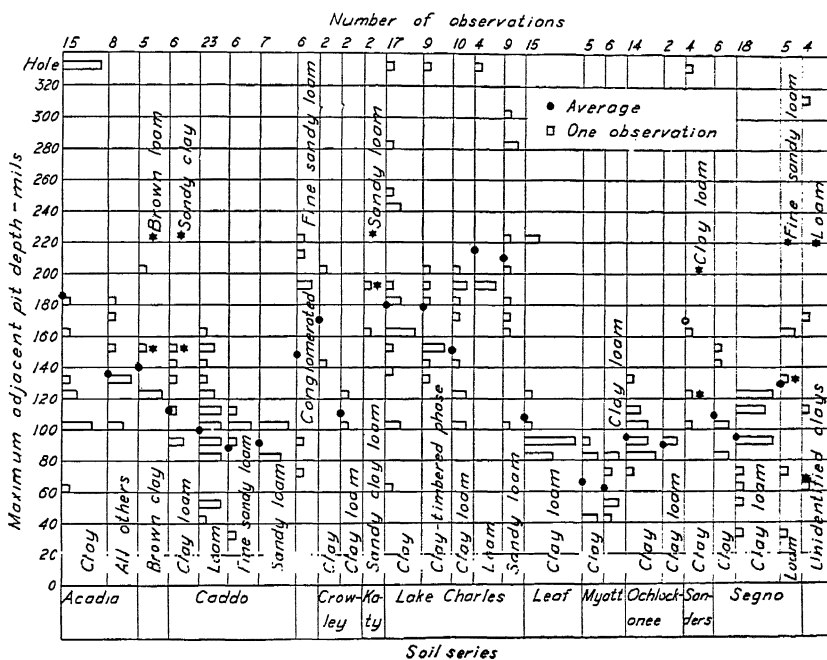 Number of observations
15 8 5 6 23 6 7 6 2 2 2 17 9 10 4 9 15 5 6 14 2 4 6 18 5 4
Hole
320
300
280
260
240
220
200
180
160
140
120
100
80
60
40
20
0
Maximum adjacent pit depth-mils
● Average
□ One observation
* Brown loam
* Sandy clay
Fine sandy loam
* Sandy loam
* Clay loam
* Fine sandy loam
* Loam
Clay
All others
Brown clay
Clay loam
Loam
Fine sandy loam
Sandy loam
Conglomerated
Clay
Clay loam
Sandy clay loam
Clay
Clay timbered phase
Clay loam
Loam
Sandy loam
Clay loam
Clay
Clay loam
Clay
Clay loam
Clay
Clay
Clay loam
Loam
Unidentified clays
Acadia
Caddo
Crow-
ley
Ka-
ty
Lake Charles
Leaf
Myatt
Ochlock-
onee
San-
ders
Segno
Soil series